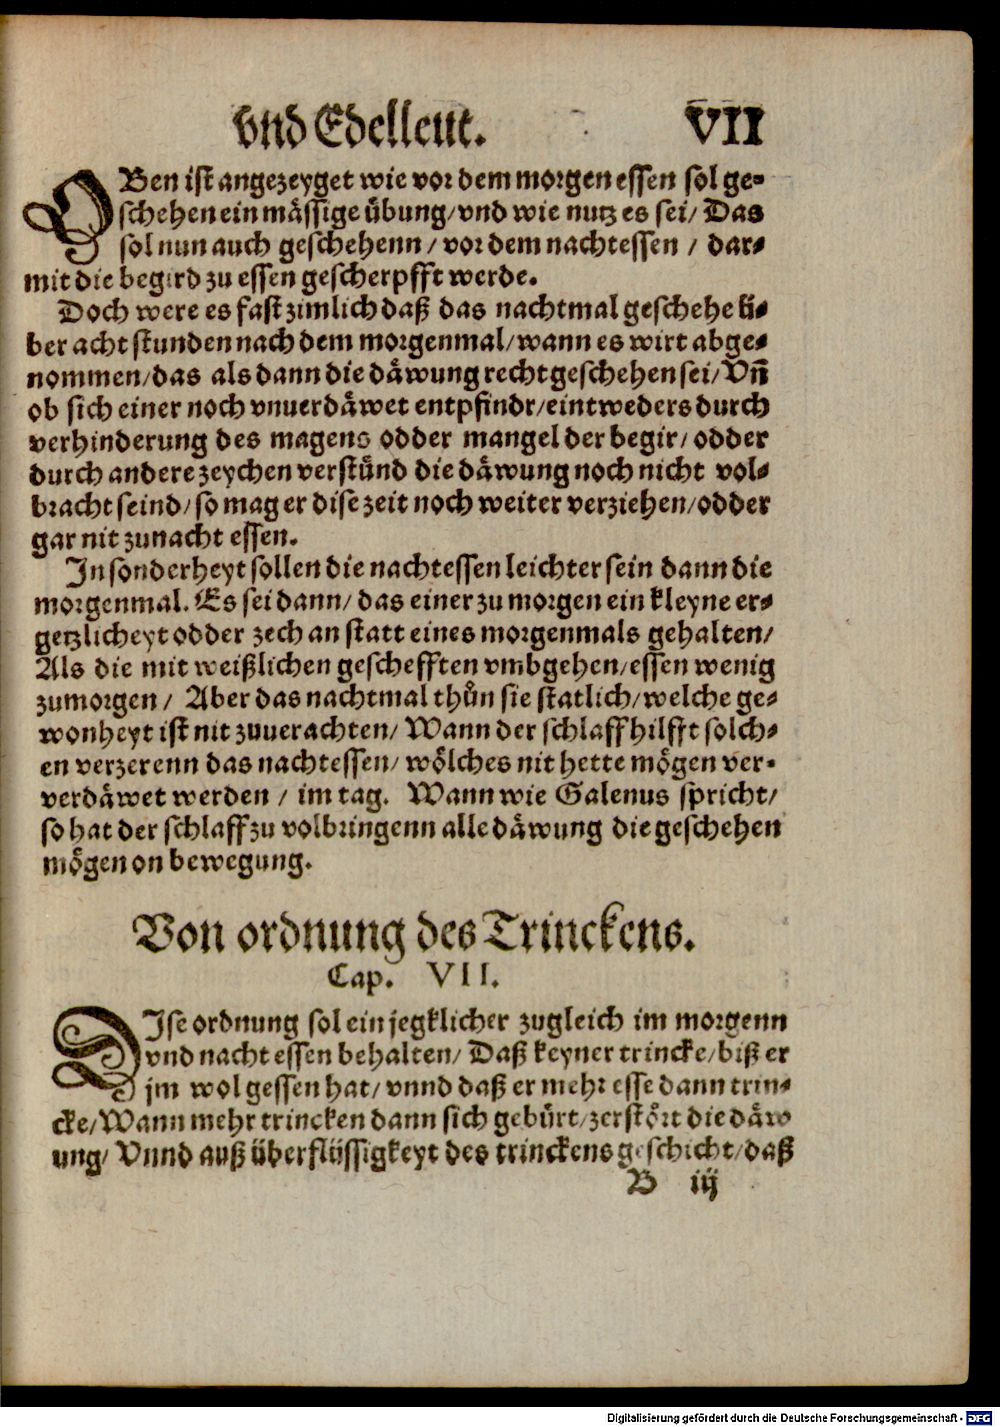 vnd Edelleut. VII
OBen ist angezeyget wie vor dem morgen essen sol ge-
schehen ein mässige übung/vnd wie nutz es sei/ Das
sol nun auch geschehenn / vor dem nachtessen / dar-
mit die begird zu essen gescherpfft werde.
Doch were es fast zimlich daß das nachtmal geschehe ü-
ber acht stunden nach dem morgenmal/wann es wirt abge-
nommen/das als dann die däwung recht geschehen sei/ Vñ
ob sich einer noch vnuerdäwet entpfindt/eintweders durch
verhinderung des magens odder mangel der begir/ odder
durch andere zeychen verstünd die däwung noch nicht vol-
bracht seind/ so mag er dise zeit noch weiter verziehen/odder
gar nit zunacht essen.
In sonderheyt sollen die nachtessen leichter sein dann die
morgenmal. Es sei dann/ das einer zu morgen ein kleyne er-
getzlicheyt odder zech an statt eines morgenmals gehalten/
Als die mit weißlichen geschefften vmbgehen/essen wenig
zumorgen / Aber das nachtmal thůn sie statlich/welche ge-
wonheyt ist nit zuuerachten/ Wann der schlaff hilfft solch-
en verzerenn das nachtessen/ wölches nit hette mögen ver-
verdäwet werden / im tag. Wann wie Galenus spricht/
so hat der schlaff zu volbringenn alle däwung die geschehen
mögen on bewegung.
Von ordnung des Trinckens.
Cap. VII.
DIse ordnung sol ein jegklicher zugleich im morgenn
vnd nacht essen behalten/ Daß keyner trincke/biß er
jm wol gessen hat/ vnnd daß er mehr esse dann trin-
cke/Wann mehr trincken dann sich gebürt/zerstört die däw
ung/ Vnnd auß überflüssigkeyt des trinckens geschicht/daß
B iij
Digitalisierung gefördert durch die Deutsche Forschungsgemeinschaft - DFG